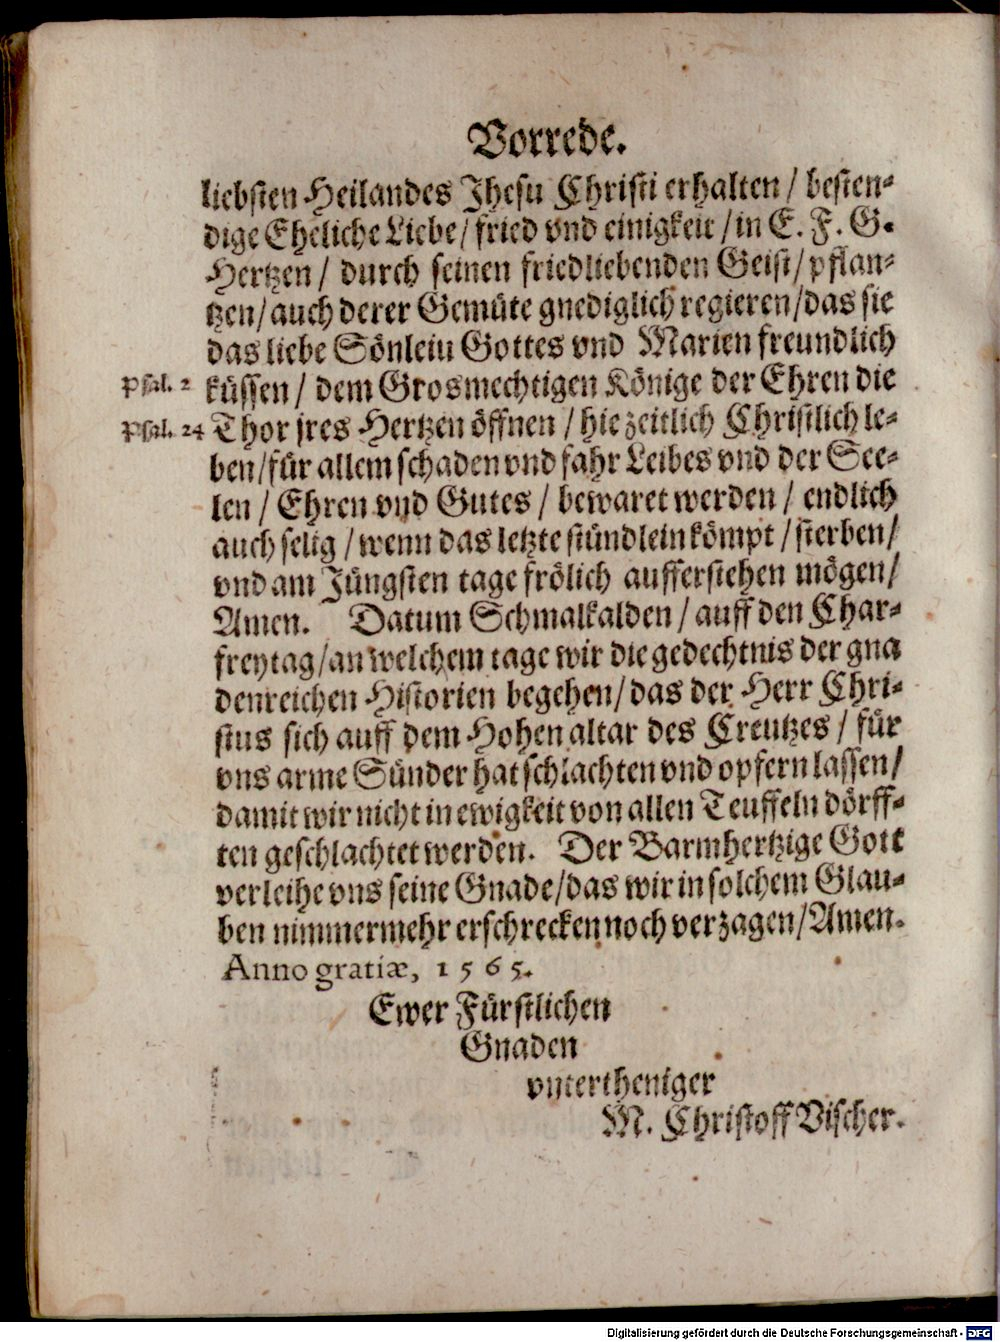 Vorrede.
liebsten Heilandes Jhesu Christi erhalten / besten-
dige Eheliche Liebe / fried vnd einigkeit / in E. F. G.
Hertzen / durch seinen friedliebenden Geist / pflan-
tzen / auch derer Gemüte gnediglich regieren / das sie
das liebe Sönlein Gottes vnd Marien freundlich
Psal. 2 küssen / dem Grosmechtigen Könige der Ehren die
Psal. 24 Thor jres Hertzen öffnen / hie zeitlich Christlich le-
ben / für allem schaden vnd fahr Leibes vnd der See-
len / Ehren vnd Gutes / bewaret werden / endlich
auch selig / wenn das letzte stündlein kömpt / sterben /
vnd am Jüngsten tage frölich aufferstehen mögen /
Amen. Datum Schmalkalden / auff den Char-
freytag / an welchem tage wir die gedechtnis der gna
denreichen Historien begehen / das der Herr Chri-
stus sich auff dem Hohen altar des Creutzes / für
vns arme Sünder hat schlachten vnd opfern lassen /
damit wir nicht in ewigkeit von allen Teuffeln dörff-
ten geschlachtet werden. Der Barmhertzige Gott
verleihe vns seine Gnade / das wir in solchem Glau-
ben nimmermehr erschrecken noch verzagen / Amen.
Anno gratiæ, 1565.
Ewer Fürstlichen
Gnaden
vntertheniger
M. Christoff Vischer.
Digitalisierung gefördert durch die Deutsche Forschungsgemeinschaft - DFG